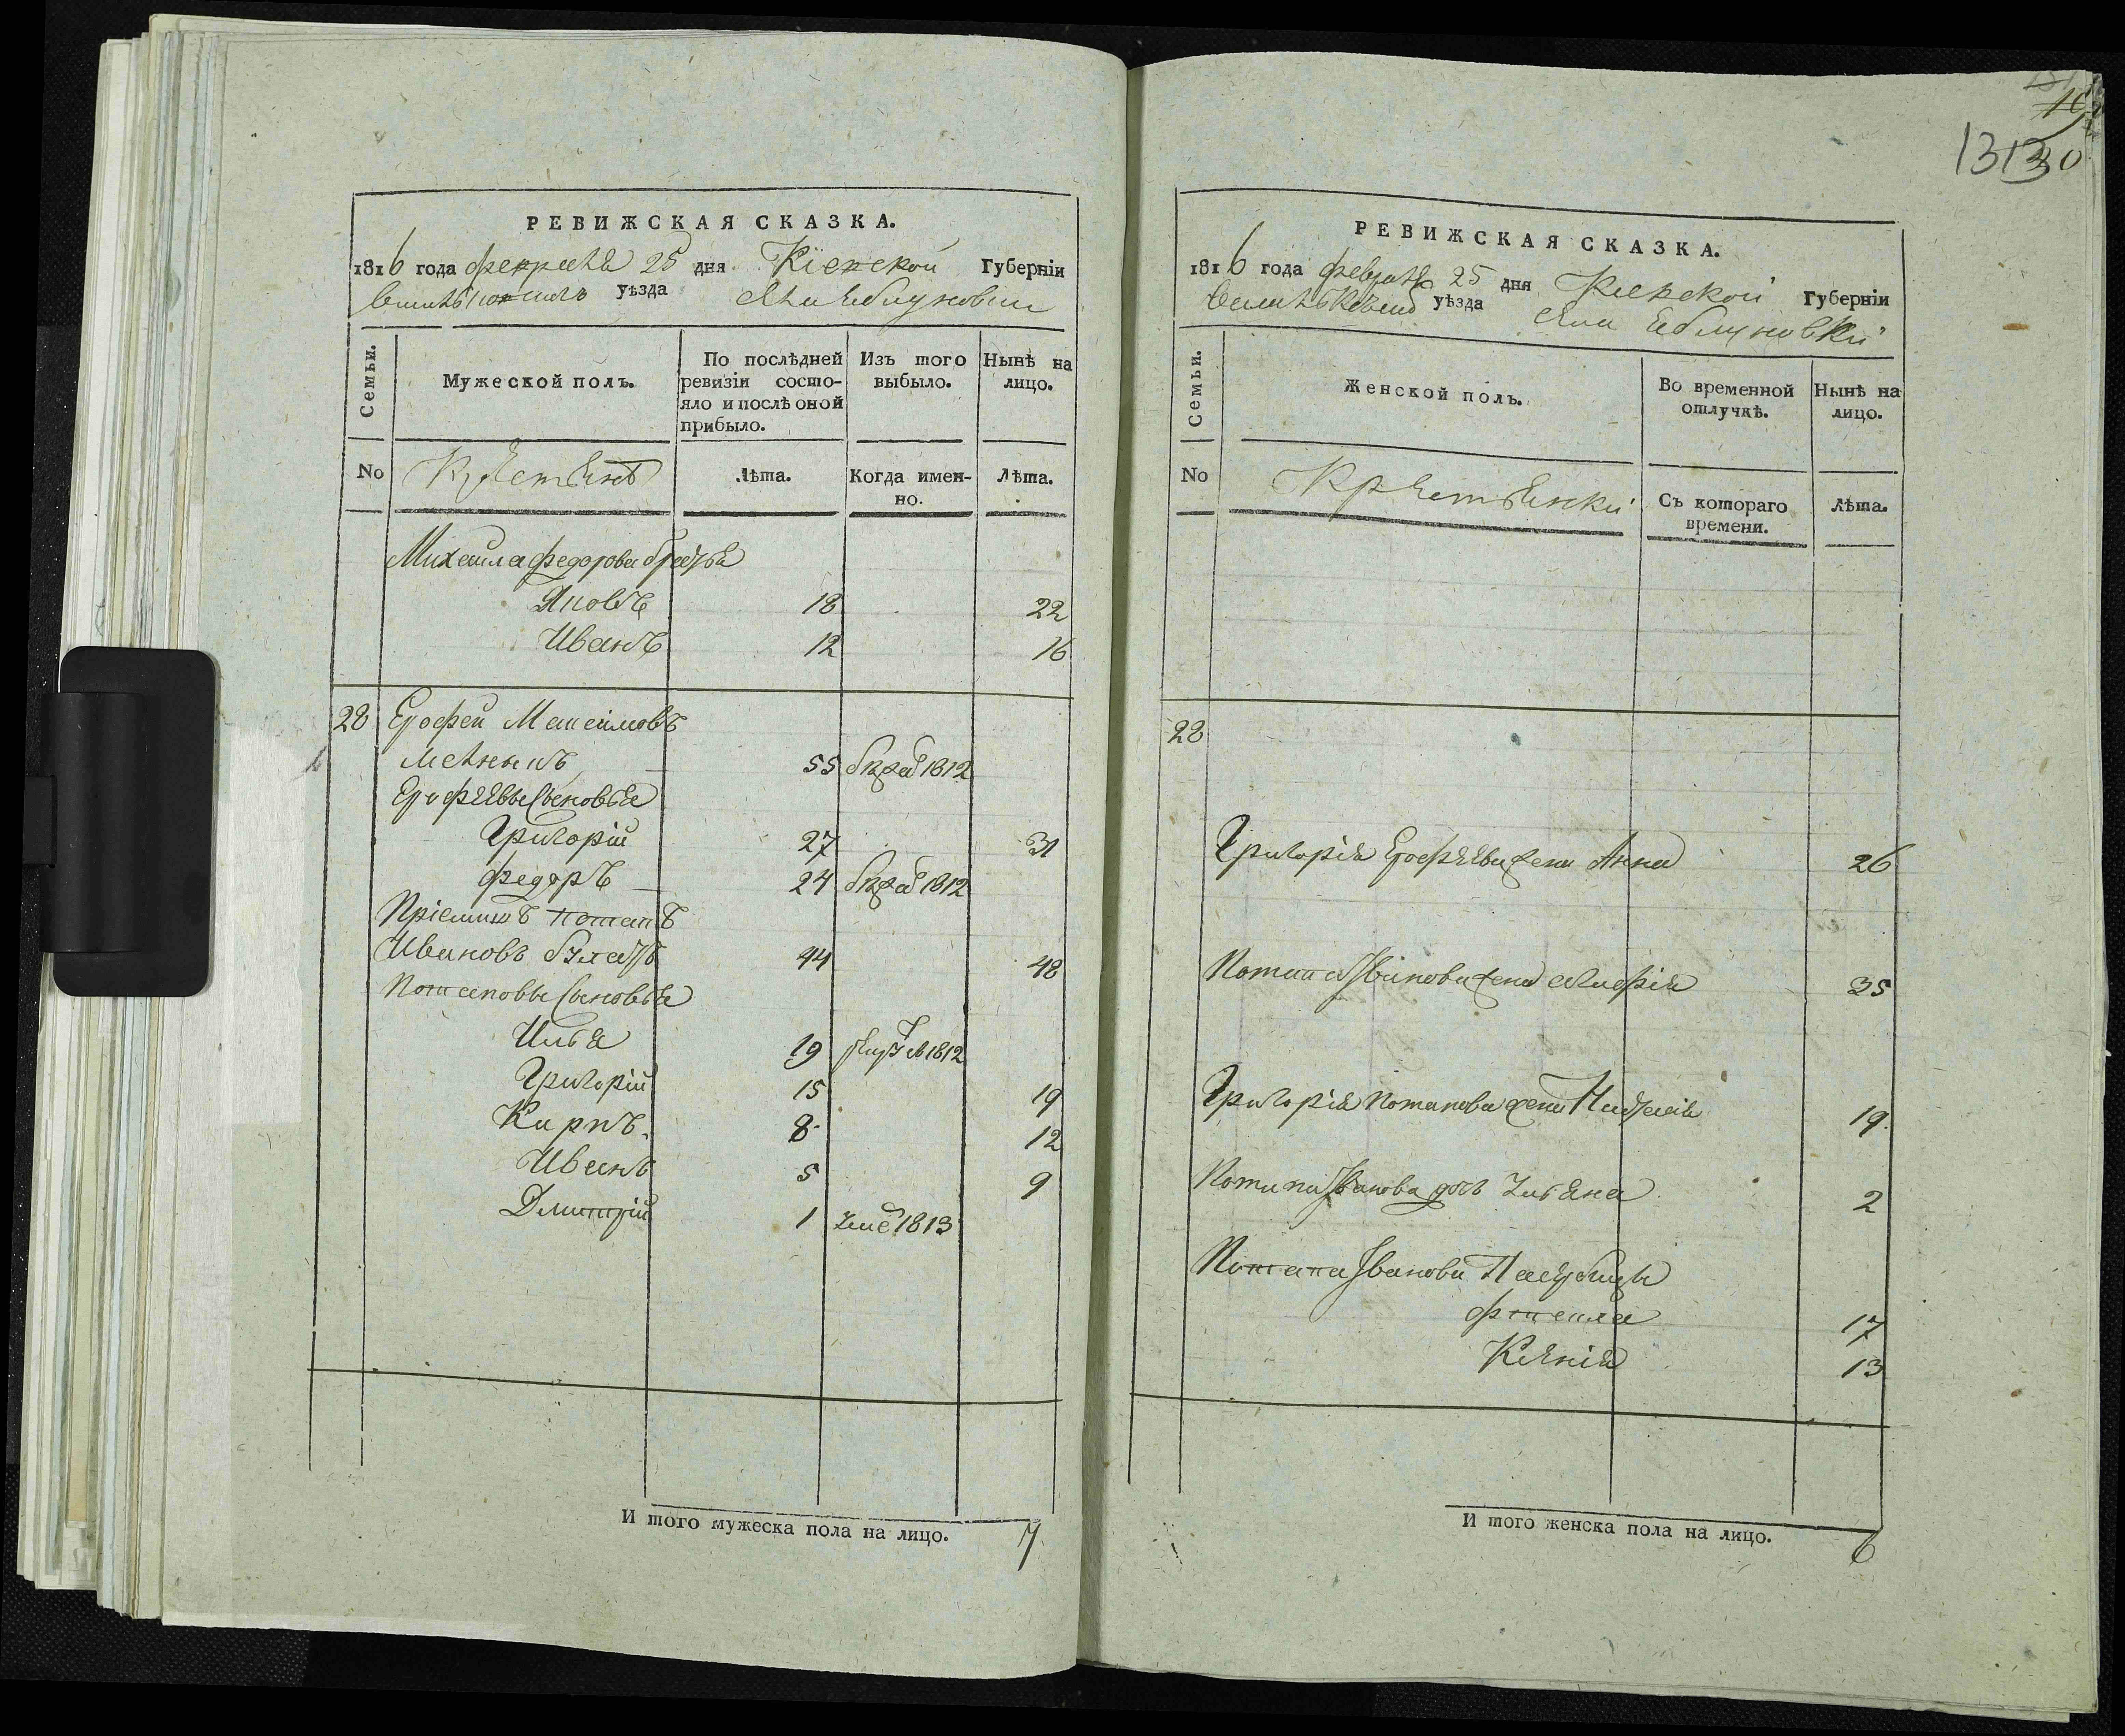 РЕВИЖСКАЯ СКАЗКА.
1816 года февраля 25 дня Кіевской Губерніи
Васильковскаго уѣзда села Яблуновки
Семьи.
Мужеской полъ.
По послѣдней ревизіи состо-
яло и послѣ оной
прибыло.
Изъ того
выбыло.
Нынѣ на
лицо.
No
Крестьянѣ
Лѣта.
Когда имен-
но.
Лѣта.
Михаила Федорова братья
Яковъ 18 22
Иванъ 12 16
28 Ерофей Максимовъ
Мельникъ 55 1812
Ерофѣевы сыновья
Григорій 27 31
Федоръ 24 1812
Пріемышъ Потапъ
Ивановъ 44 48
Потаповы сыновья
Илья 19 1812
Григорій 15 19
Карпъ 8 12
Иванъ 5 9
Дмитрій 1 1813
И того мужеска пола на лицо. 7
13130
РЕВИЖСКАЯ СКАЗКА.
1816 года февраля 25 дня Кіевской Губерніи
уѣзда села Яблуновки
Семьи.
Женской полъ.
Во временной
отлучкѣ.
Нынѣ на
лицо.
No
Крестьянки
Съ котораго
времени.
Лѣта.
28
Григорія Ерофѣева жена Анна 26
Потапа Иванова жена 35
Григорія Потапова жена 19
Потапа Иванова дочь Ульяна 2
Потапа Иванова
17
Ксенія 13
И того женска пола на лицо. 6